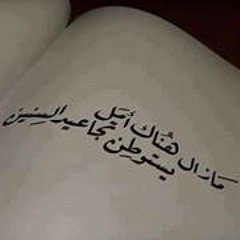 مَازال هُناك أمَل
يستوطِن تجاعيد السِنين